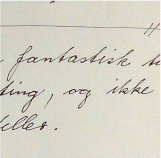 fantastisk
ting, og ikke
eller.